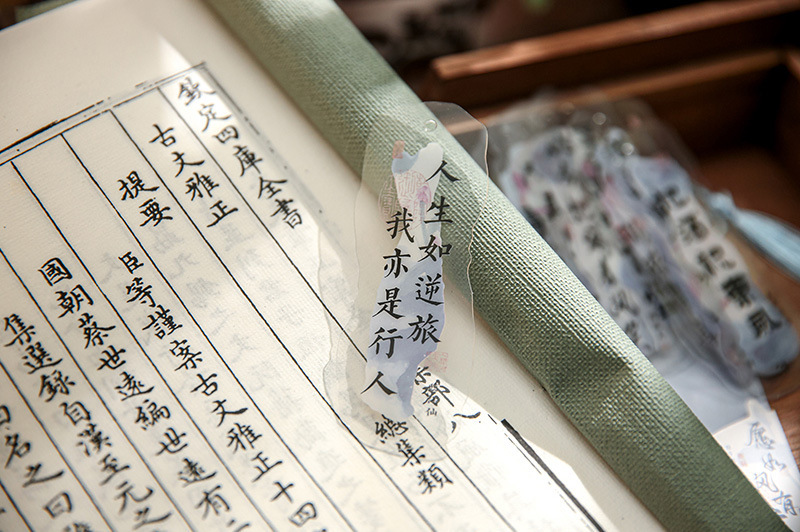 欽定四庫全書 部八
古文雅正 總集類
提要
臣等謹案古文雅正十四
國朝蔡世遠編世遠有二
集選錄自漢至元之
名之曰
人生如逆旅
我亦是行人